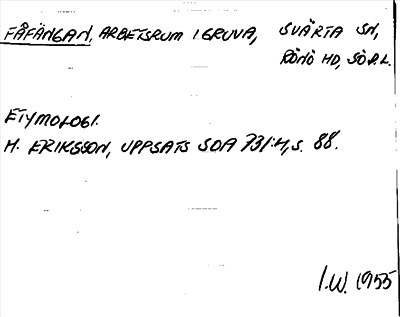 FÅFÄNGAN, ARBETSRUM I GRUVA, SVÄRTA SN,
RÖNÖ HD, SÖD.L.
ETYMOLOGI.
H. ERIKSSON, UPPSATS SOA 731:4, S. 88.
I.W. 1955